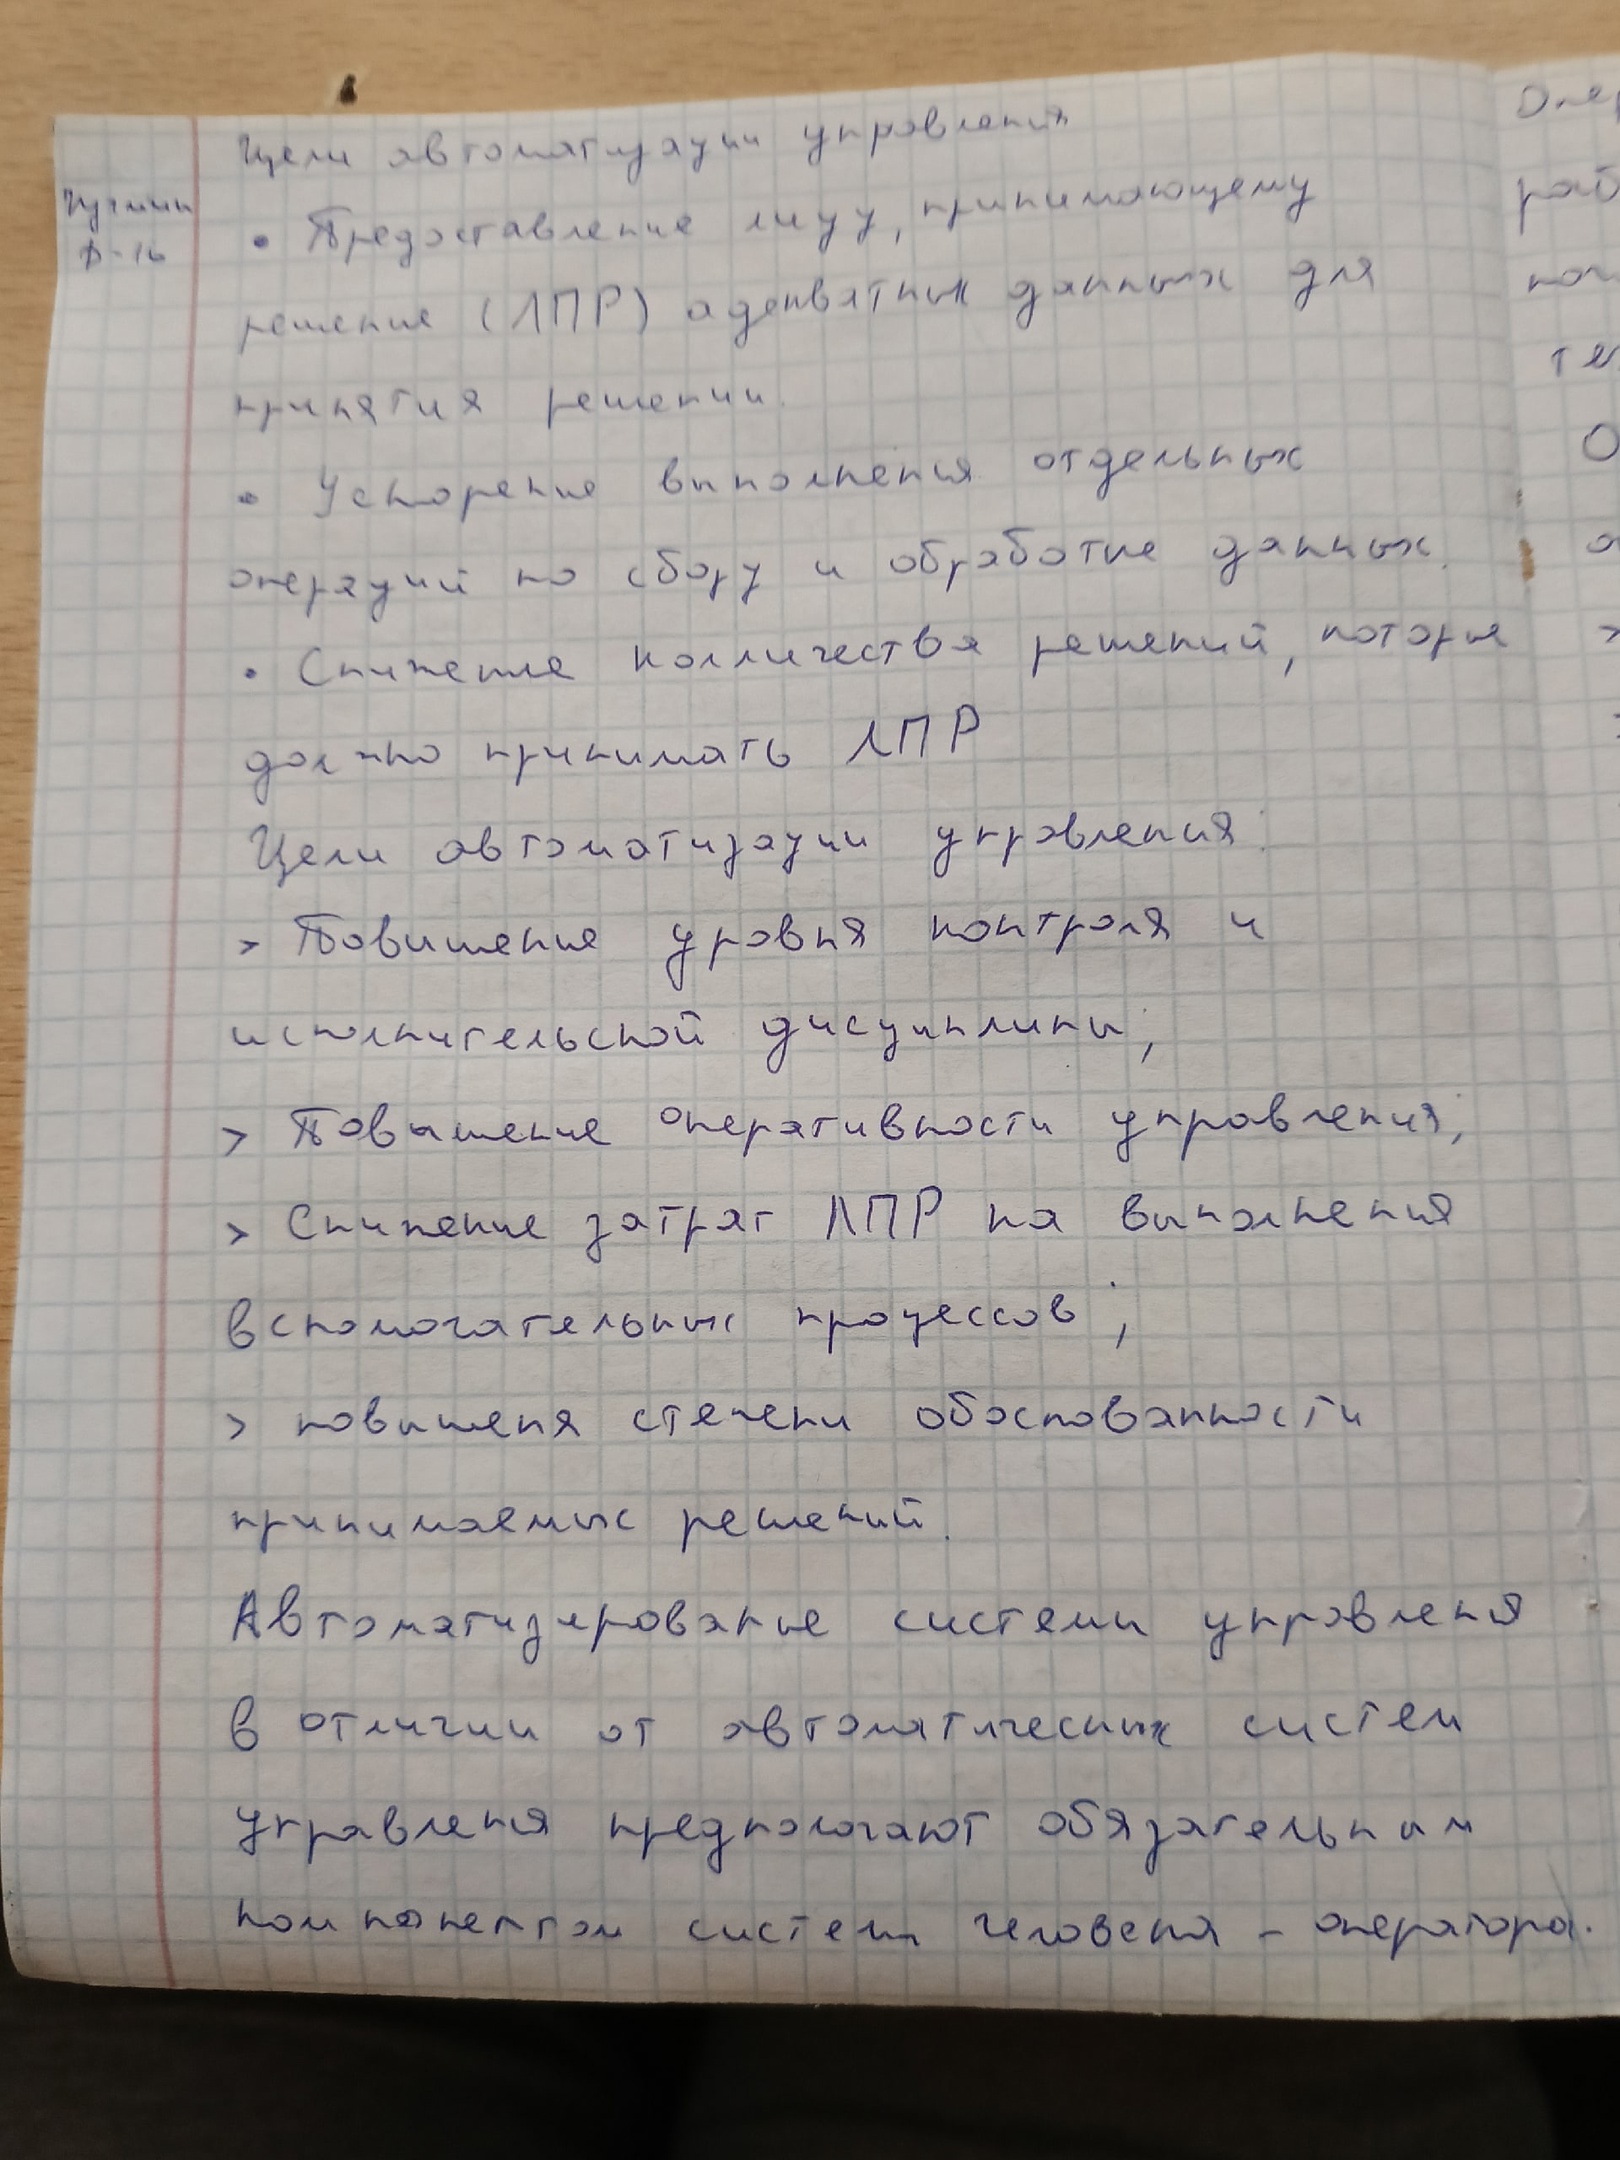 Цели автоматизации управления
• Предоставление лицу, принимающему
решение (ЛПР) адекватных данных для
принятия решении.
• Ускорение выполнения отдельных
операций по сбору и обработке данных.
• Снижение колличества решений, которые
должно принимать ЛПР
Цели автоматизации управления:
> Повишение уровня контроля и
исполнительской дисциплины;
> Повышение оперативности управления;
> Снижение затрат ЛПР на выполнения
вспомогательных процессов;
> повышеня степени обоснованности
принимаемых решений.
Автоматизированые системы управления
в отличии от автоматических систем
управления предпологают обязательным
компонентом системы человека - оператора.